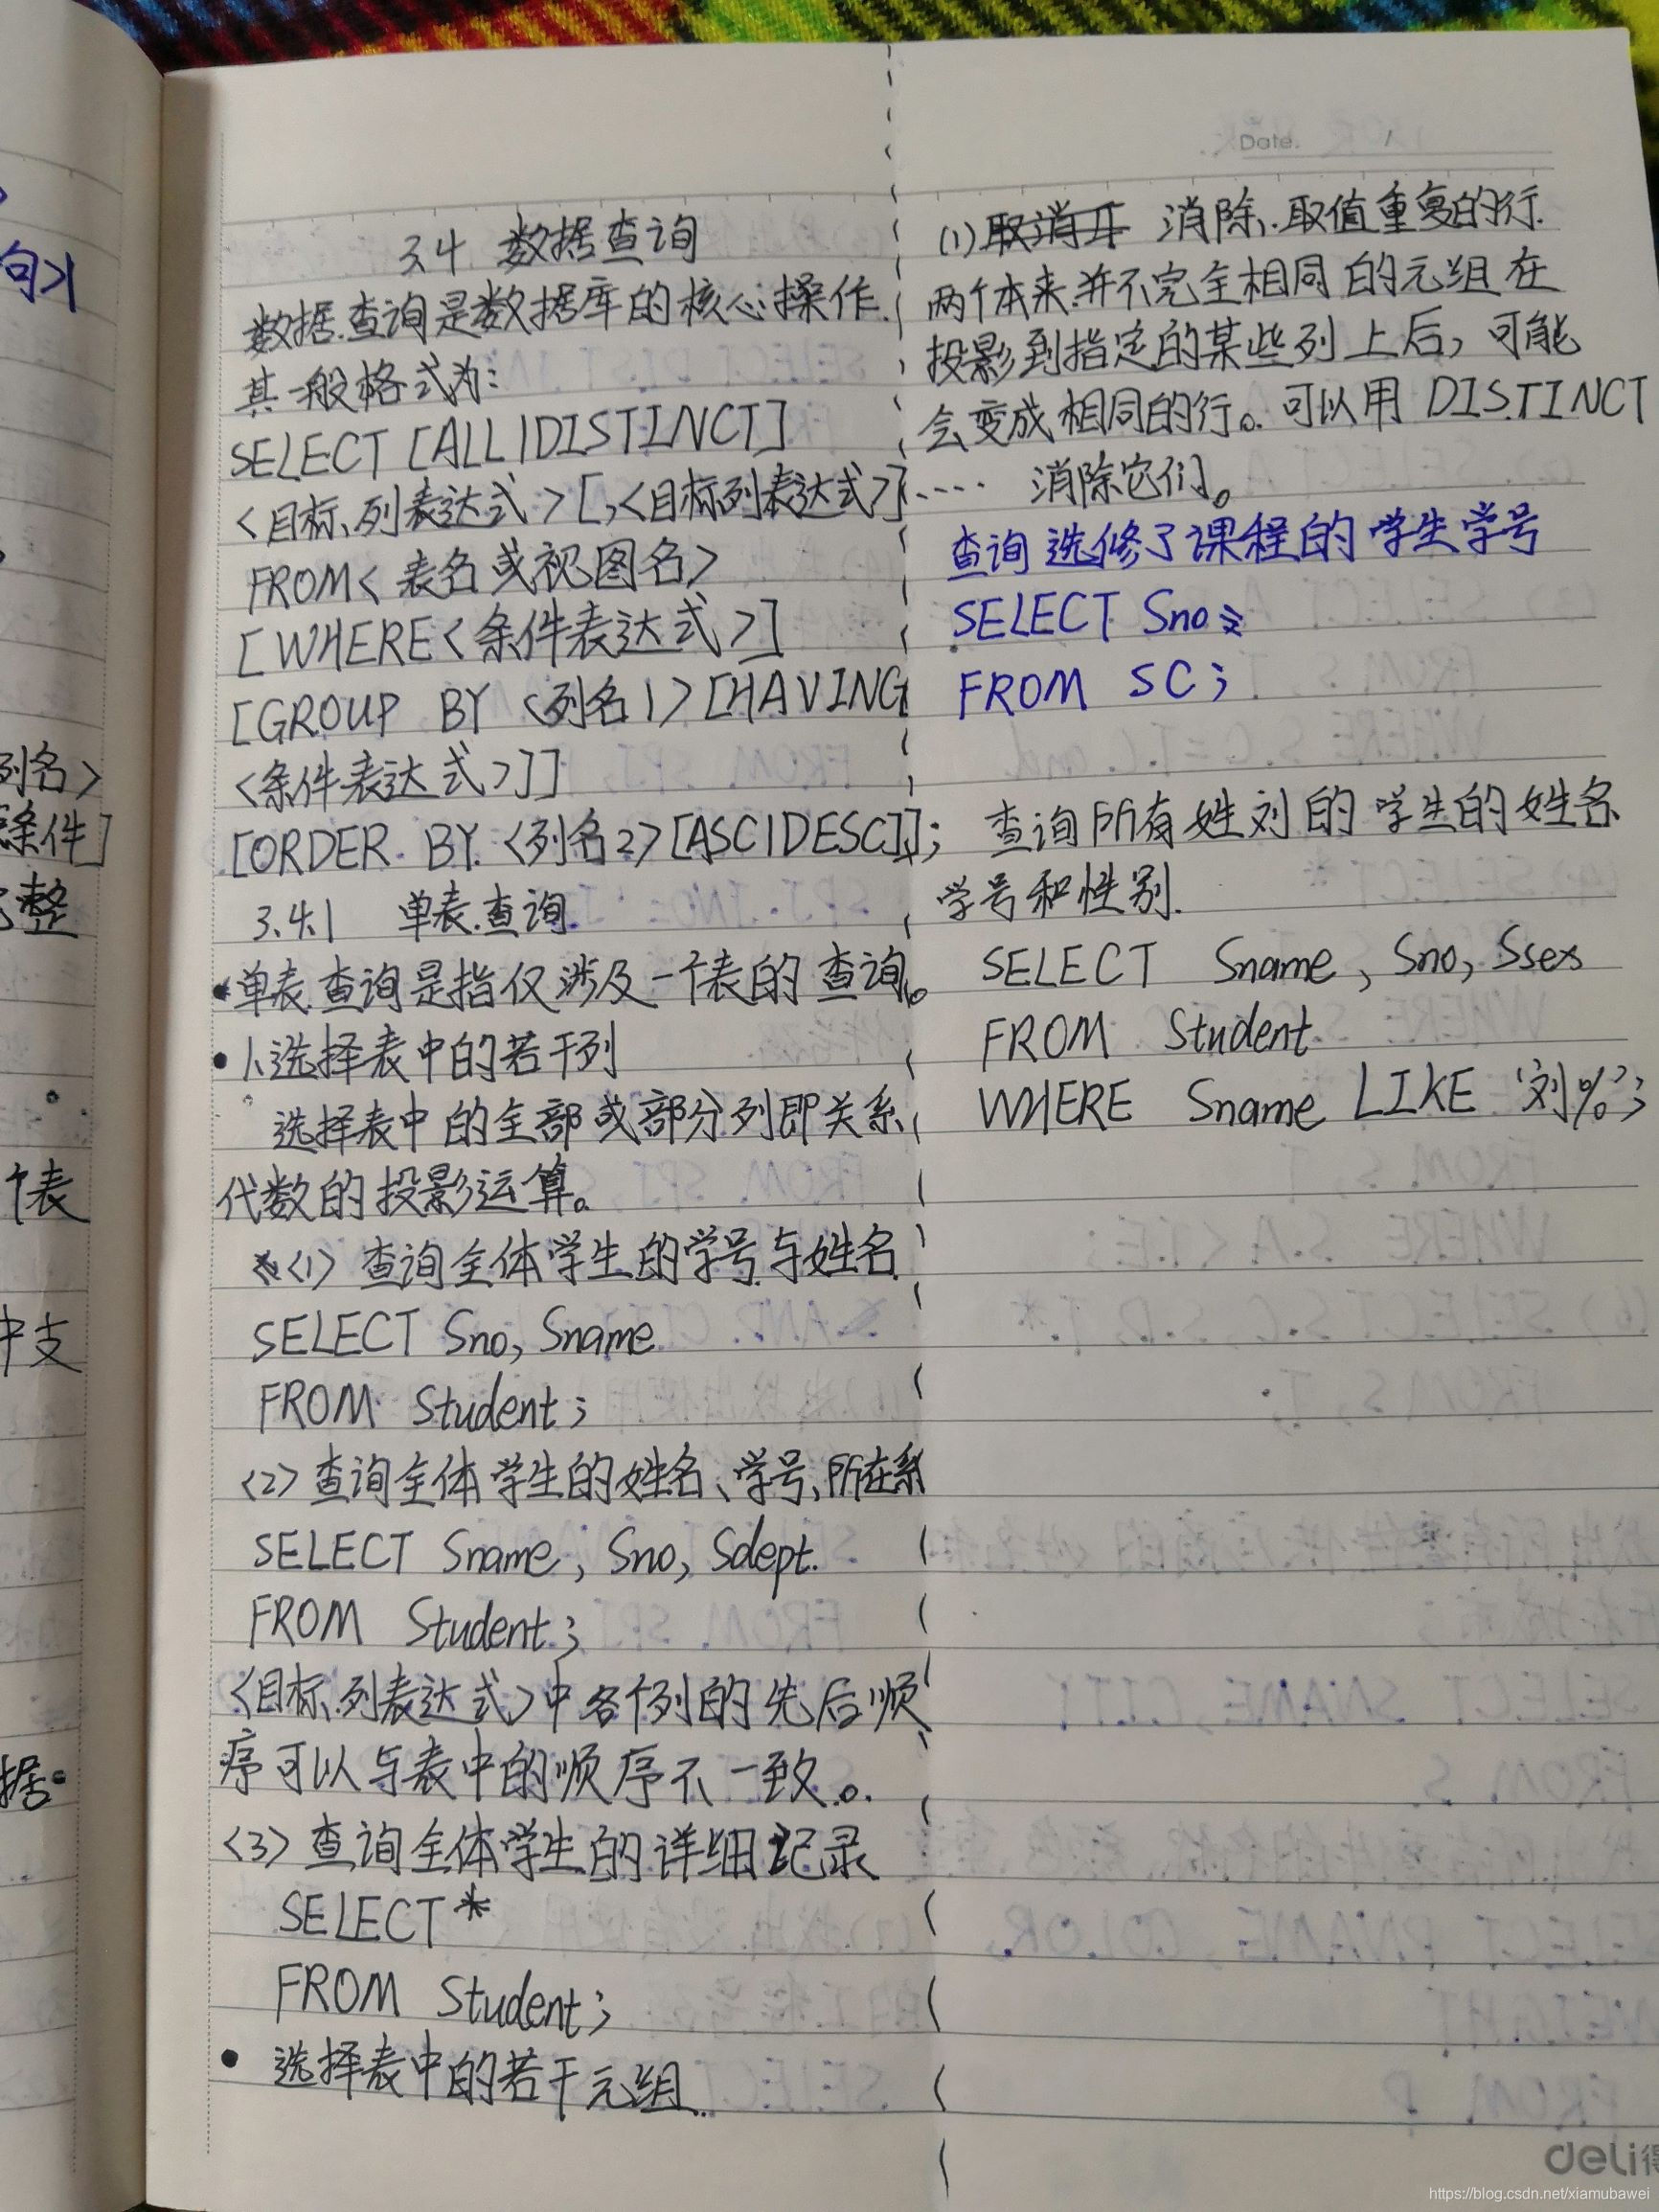 3.4 数据查询
数据查询是数据库的核心操作.
其一般格式为:
SELECT [ALL|DISTINCT]
<目标列表达式>[,<目标列表达式>]....
FROM<表名或视图名>
[WHERE<条件表达式>]
[GROUP BY <列名1>[HAVING
<条件表达式>]]
[ORDER BY <列名2>[ASC|DESC]];
3.4.1 单表查询
•单表查询是指仅涉及一个表的查询。
•1.选择表中的若干列
选择表中的全部或部分列即关系
代数的投影运算。
<1> 查询全体学生的学号与姓名
SELECT Sno, Sname
FROM Student;
<2> 查询全体学生的姓名、学号、所在系
SELECT Sname, Sno, Sdept.
FROM Student;
<目标列表达式>中各个列的先后顺
序可以与表中的顺序不一致。
<3> 查询全体学生的详细记录
SELECT *
FROM Student;
• 选择表中的若干元组
Date. /
(1) 消除取值重复的行.
两个本来并不完全相同的元组在
投影到指定的某些列上后,可能
会变成相同的行。可以用 DISTINCT
消除它们。
查询选修了课程的学生学号
SELECT Sno
FROM SC;
查询所有姓刘的学生的姓名
学号和性别.
SELECT Sname, Sno, Ssex
FROM Student
WHERE Sname LIKE '刘%';
句>]
列名>
条件]
整
个表
中支
据
deli得
https://blog.csdn.net/xiamubawei